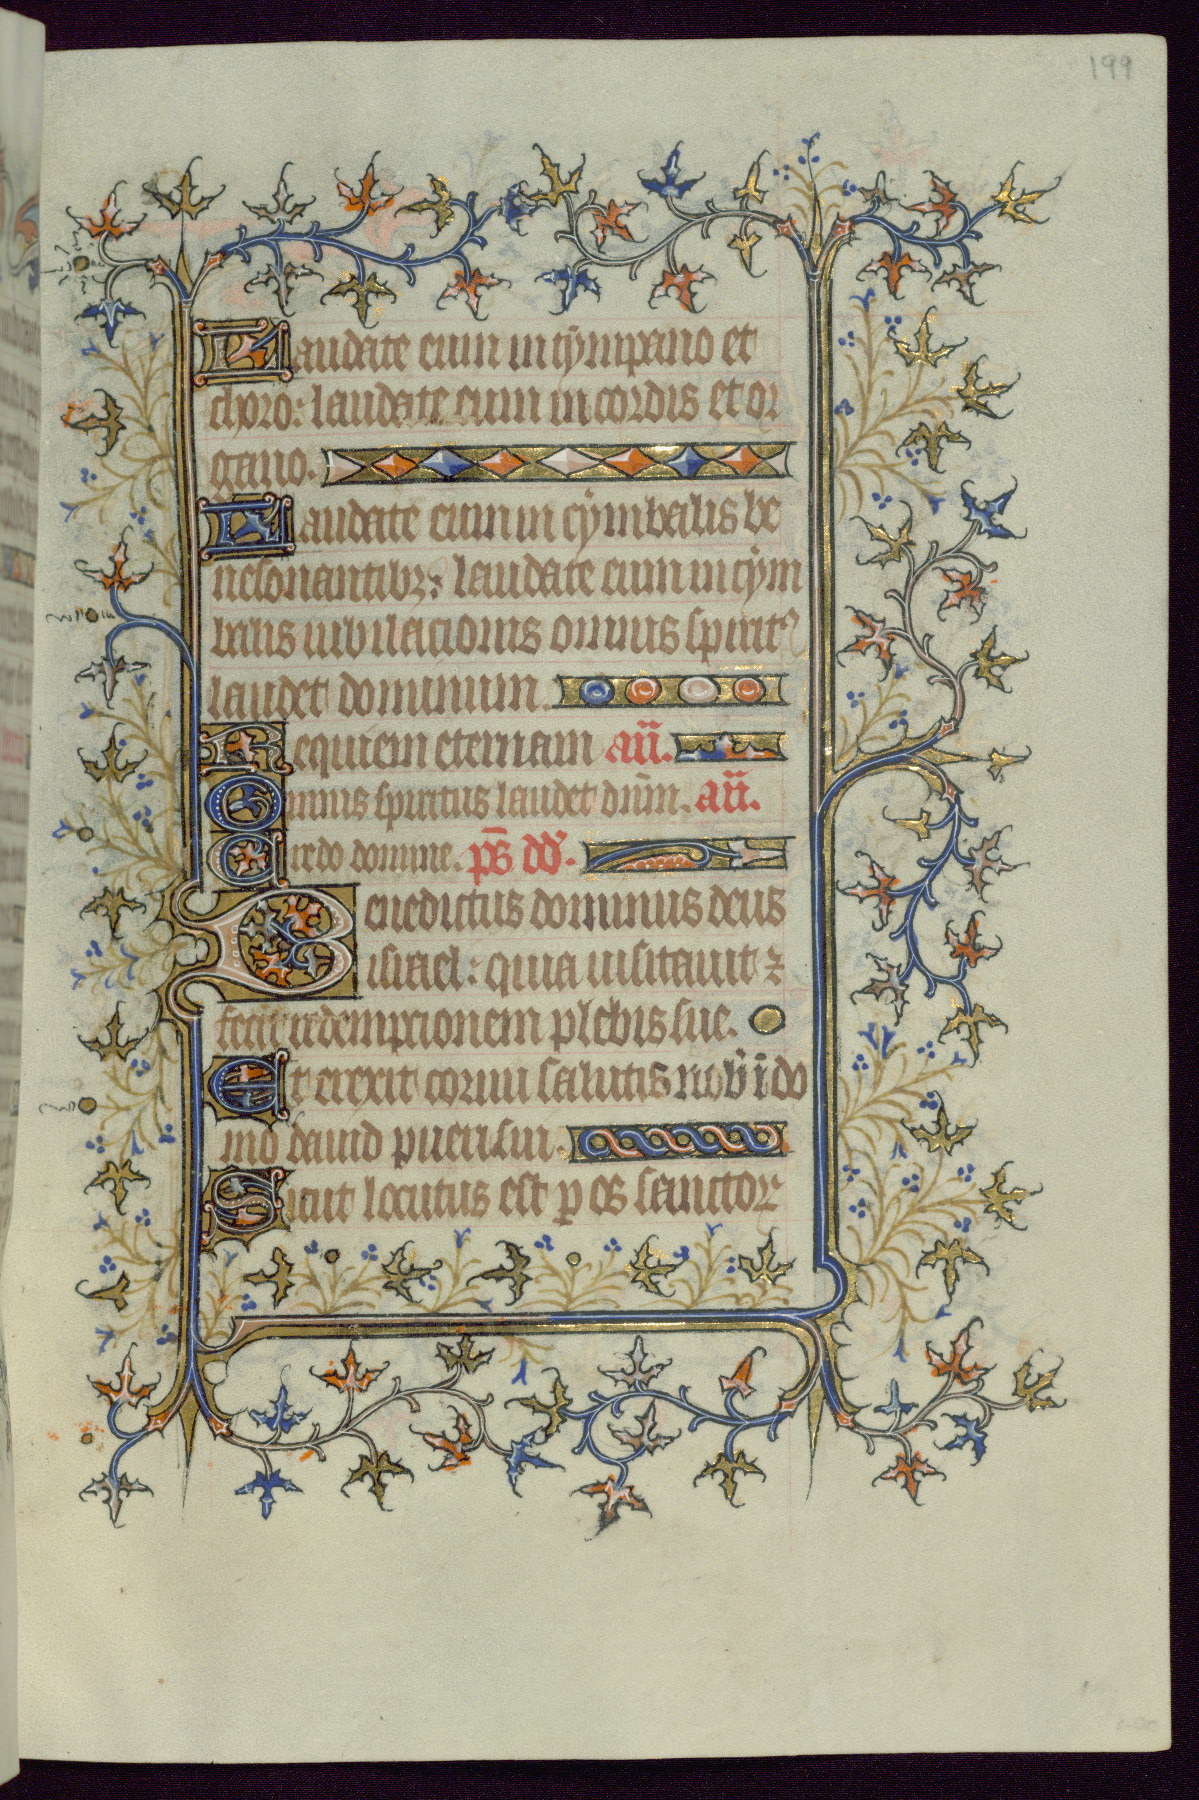 199
Laudate eum in tympano et
choro: laudate eum in cordis et or
gano.
Laudate eum in cymbalis be
nesonantibz: laudate eum in cym
balis iubilacionis omnis spirit⁹
laudet dominum.
Requiem eternam añ.
Omnis spiritus laudet dñm. añ.
Credo domine. ps̄ dd'.
Benedictus dominus deus
israel: quia uisitauit ⁊
fecit redemptionem plebis sue.
Et erexit cornu salutis nob̄ ī do
mo dauid pueri sui.
Sicut locutus est p os sanctor